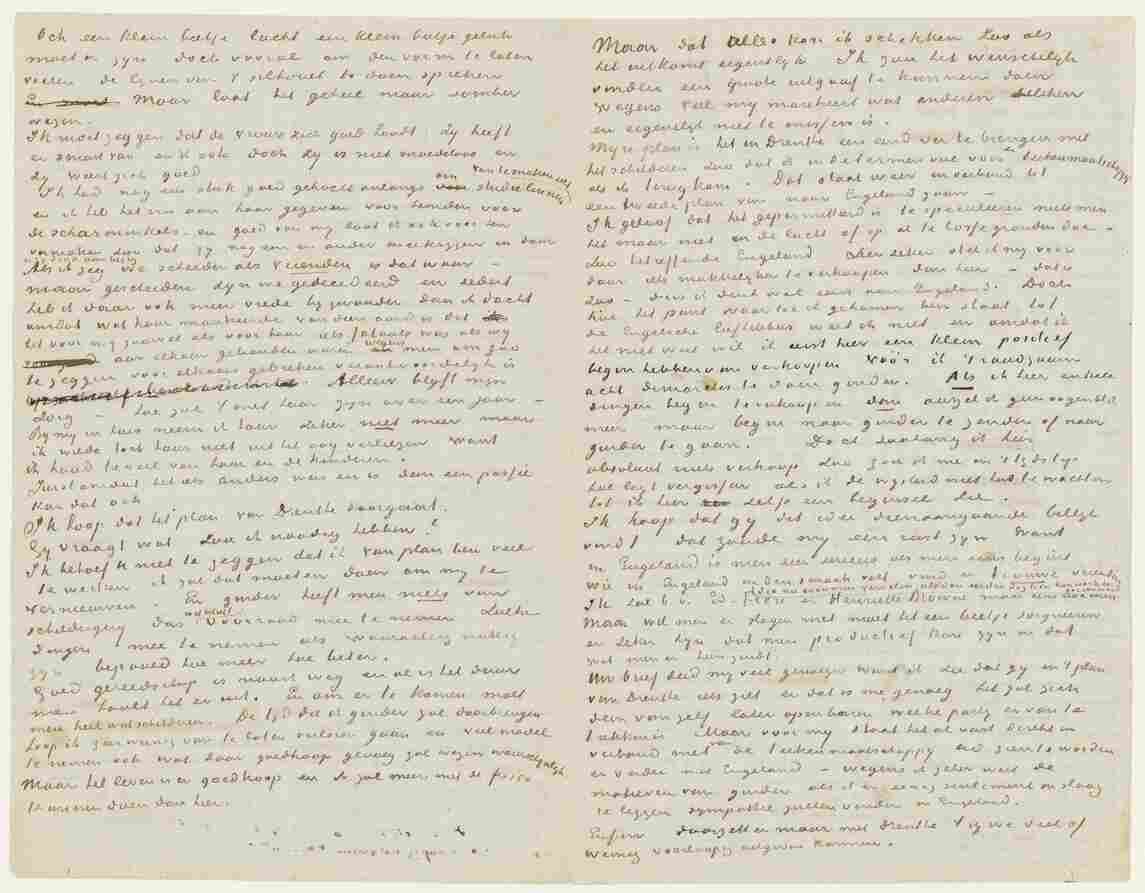 Och een klein beetje lucht een klein beetje geluk
moet er zijn doch vooral om den vorm te laten
voelen de lijnen van 't silhouet te doen spreken
Maar laat het geheel maar somber
wezen.
Ik moet zeggen dat de vrouw zich goed houdt. Zy heeft
er smart van en ik ook doch zy is niet moedeloos en
zy weert zich goed
Ik had nog een stuk goed gekocht onlangs om van te maken voor studielinnen
en ik heb het nu aan haar gegeven voor hemden voor
de schaars en goed van my laat ik ook voor hen
vermaken zoodat zy nog een en ander meekrijgen en daar
Als ik zeg we scheiden als vrienden is dat waar –
maar gescheiden zyn we gedecideerd en sedert
heb ik daar ook meer vrede by gevonden dan ik dacht
omdat wat haar mankeerde van dien aard is dat
het voor my zoowel als voor haar als fataals was als wy
aan elkaar gebonden waren wegens men om zoo
te zeggen voor elkaars gebreken verantwoordelyk is
Alleen blyft myn
zorg – hoe zal 't met haar zyn over een jaar –
By my in huis neem ik haar zeker niet meer maar
ik wilde toch haar niet uit het oog verliezen want
ik houd te veel van haar en de kinderen.
Juist omdat het iets anders was en is dan een passie
kan dat ook
Ik hoop dat het plan van Drenthe doorgaat.
Gy vraagt wat zou ik noodig hebben?
Ik behoef U niet te zeggen dat ik van plan ben veel
te werken ik zal dat moeten doen om my te
vernieuwen. En ginder heeft men niets van
schilderij dus voorraad mee te nemen
dingen mee te nemen als waarachtig nuttig
zyn bepaald hoe meer hoe beter.
Goed gereedschap is nooit weg en al is het duur
men haalt het er uit. En om er te komen moet
men heel wat schilderen. De tyd die ik ginder zal doorbrengen
hoop ik zoo weinig van te laten verloren gaan en veel model
te nemen ook wat daar goedkoop genoeg zal wezen waarschynlyk
Maar het leven is er goedkoop en ik zal meer met de f 150
kunnen doen dan hier.
Maar dat alles kan ik schikken zoo als
het uitkomt eigentlyk. Ik zou het wenschelyk
vinden een groote uitgaaf te kunnen doen
wegens veel my mankeert wat anderen hebben
en eigentlyk niet te missen is.
Myn plan is het in Drenthe een eind ver te brengen met
het schilderen zoo dat ik in de termen val voor de teekenmaatschappy
als ik terug kom. Dat staat weer in verband tot
een tweede plan van naar Engeland gaan –
Ik geloof dat het gepermitteerd is te speculeeren mits men
het maar niet in de lucht of op al te losse gronden doe –
Zoo betreffende Engeland. Zeer zeker stel ik my voor
daar iets makkelyker te verkoopen dan hier – dat is
zoo – dus ik denk wel eens aan Engeland. Doch
hoe het punt waartoe ik gekomen ben staat tot
de Engelsche liefhebbers weet ik niet en omdat ik
het niet weet wil ik eerst hier een klein positief
begin hebben van verkoopen vóór ik 't raadzaam
acht demarches te doen ginder. Als ik hier enkele
dingen begin te verkoopen dan aarzel ik geen oogenblik
meer maar begin naar ginder te zenden of naar
ginder te gaan. Doch zoolang ik hier
absoluut niets verkoop zou ik me in 't tydstip
heel ligt vergissen als ik de wysheid niet had te wachten
tot ik hier zelf een beginsel zie.
Ik hoop dat gy dit idee dienaangaande billyk
vindt dat zoude my een rust zyn Want
in Engeland is men zeer serieus als men eens begint
wie in Engeland in den smaak valt vindt er trouwe vrienden
Ik zal b.v. Ed. Frère en Henriette Browne maar eens noemen
Maar wil men er slagen men moet het een beetje zorgvuldig
en zeker zyn dat men productief kan zyn in dat
wat men er heen zendt.
Uw brief deed my veel genoegen want ik zie dat gy in 't plan
van Drenthe iets ziet en dat is me genoeg het zal zich
dan van zelf later openbaren welke party er van te
trekken is. Maar voor my staat het al vast direkt in
verband met de teekenmaatschappy lid zien te worden
en verder met Engeland – wegens ik zeker weet de
motieven van ginder als ik er eenig sentiment in slaag
te leggen sympathie zullen vinden in Engeland.
Enfin doorzetten maar met Drenthe 't zy we veel of
weinig voorloopig uitgeven kunnen.